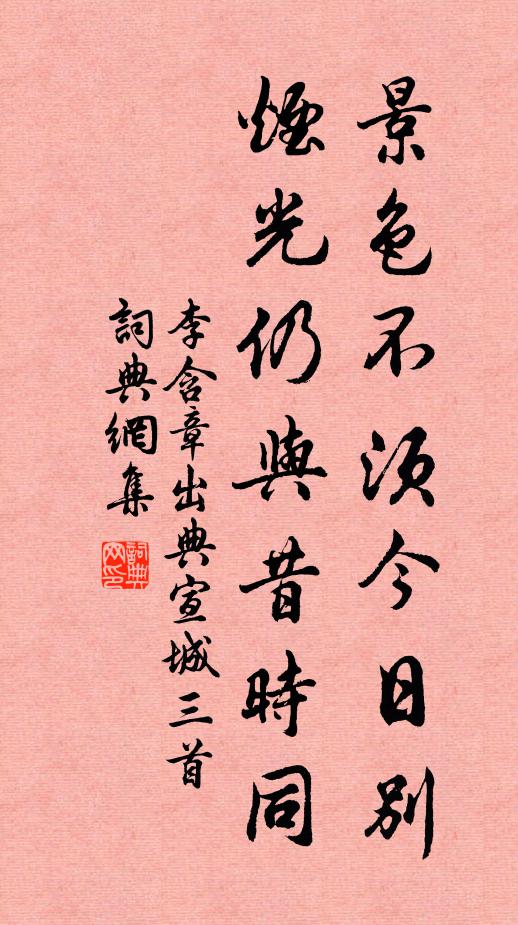 景色不須今日別
煙光仍與昔時同
李含章出典宣城三首
詞典網集
詞典
网印